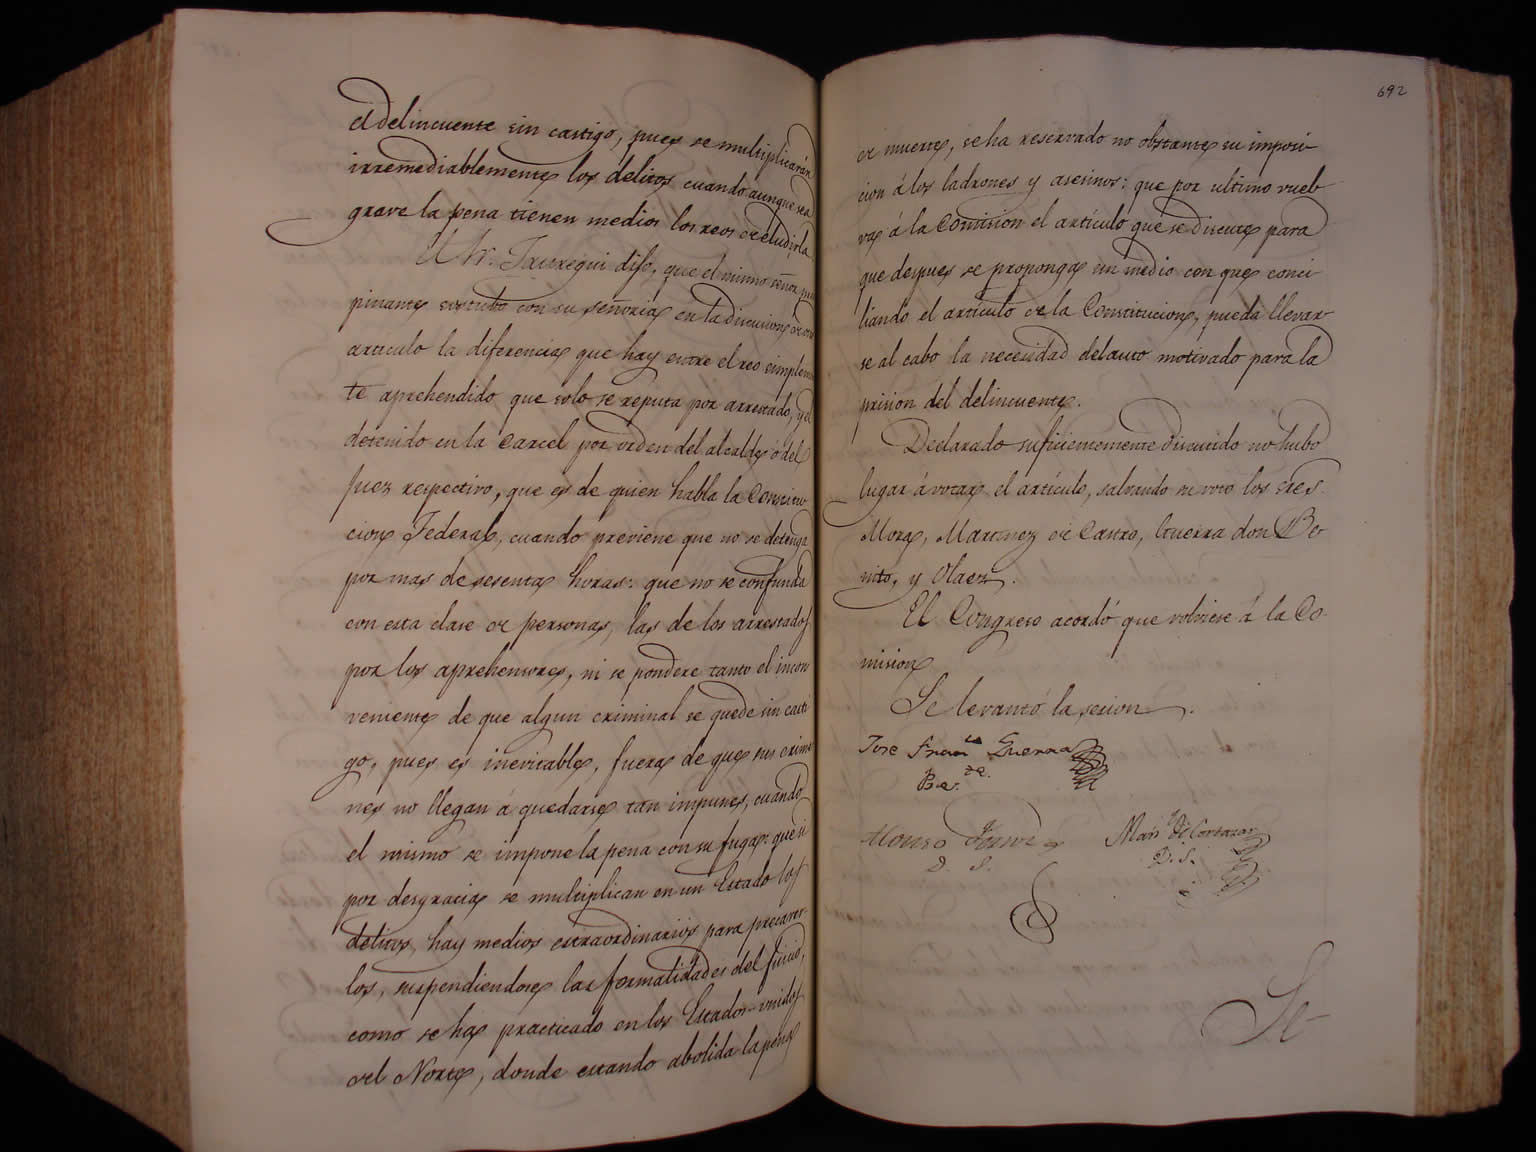 el delincuente sin castigo, pues se multiplicarán
irremediablemente los delitos cuando aunque sea
grave la pena tienen medios los reos de eludirla
El Sr. Jauregui dijo, que el mismo señor preo
pinante sostubo con su señoria en la discusion de otro
articulo la diferencia que hay entre el reo simplemen
te aprehendido que solo se reputa por arrestado, y el
detenido en la carcel por orden del alcalde ó del
juez respectivo, que es de quien habla la Constitu
cion Federal, cuando previene que no se detenga
por mas de sesenta horas: que no se confunda
con esta clase de personas, las de los arrestados
por los aprehensores, ni se pondere tanto el incon
veniente de que algun criminal se quede sin casti
go, pues es inevitable, fuera de que sus crime
nes no llegan á quedarse tan impunes, cuando
el mismo se impone la pena con su fuga: que si
por desgracia se multiplican en un Estado los
delitos, hay medios extraordinarios para precaver-
los, suspendiendose las formalidades del juicio,
como se ha practicado en los Estados-unidos
del Norte, donde estando abolida la pena
692
de muerte, se ha reservado no obstante su imposi-
cion á los ladrones y asesinos: que por ultimo vuel-
va á la Comision el artículo que se discute para
que despues se proponga un medio con que conci
liando el articulo de la Constitucion, pueda llevar
se al cabo la necesidad del auto motivado para la
prision del delincuente.
Declarado suficientemente discutido no hubo
lugar á votar el artículo, salvando su voto los Sres.
Mora, Martinez de Castro, Guerra don Be-
nito, y Olaez.
El Congreso acordó que volviese á la Co-
mision
Se levantó la sesion.
Jose Franco Guerra
Alonso
Man de Cortazar
D. S.
D. S.
Se